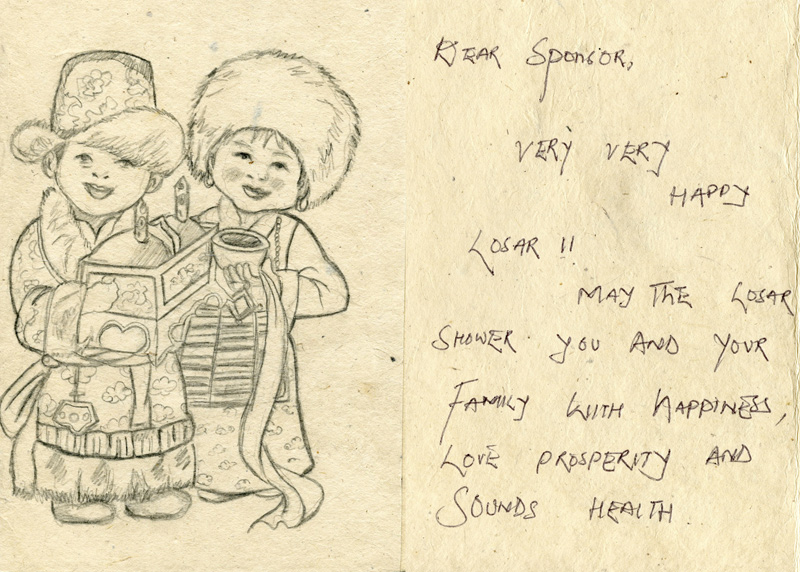 Dear Sponsor,
Very Very
Happy
Losar !!
May The Losar
Shower you and your
Family with Happiness,
Love prosperity and
Sounds Health